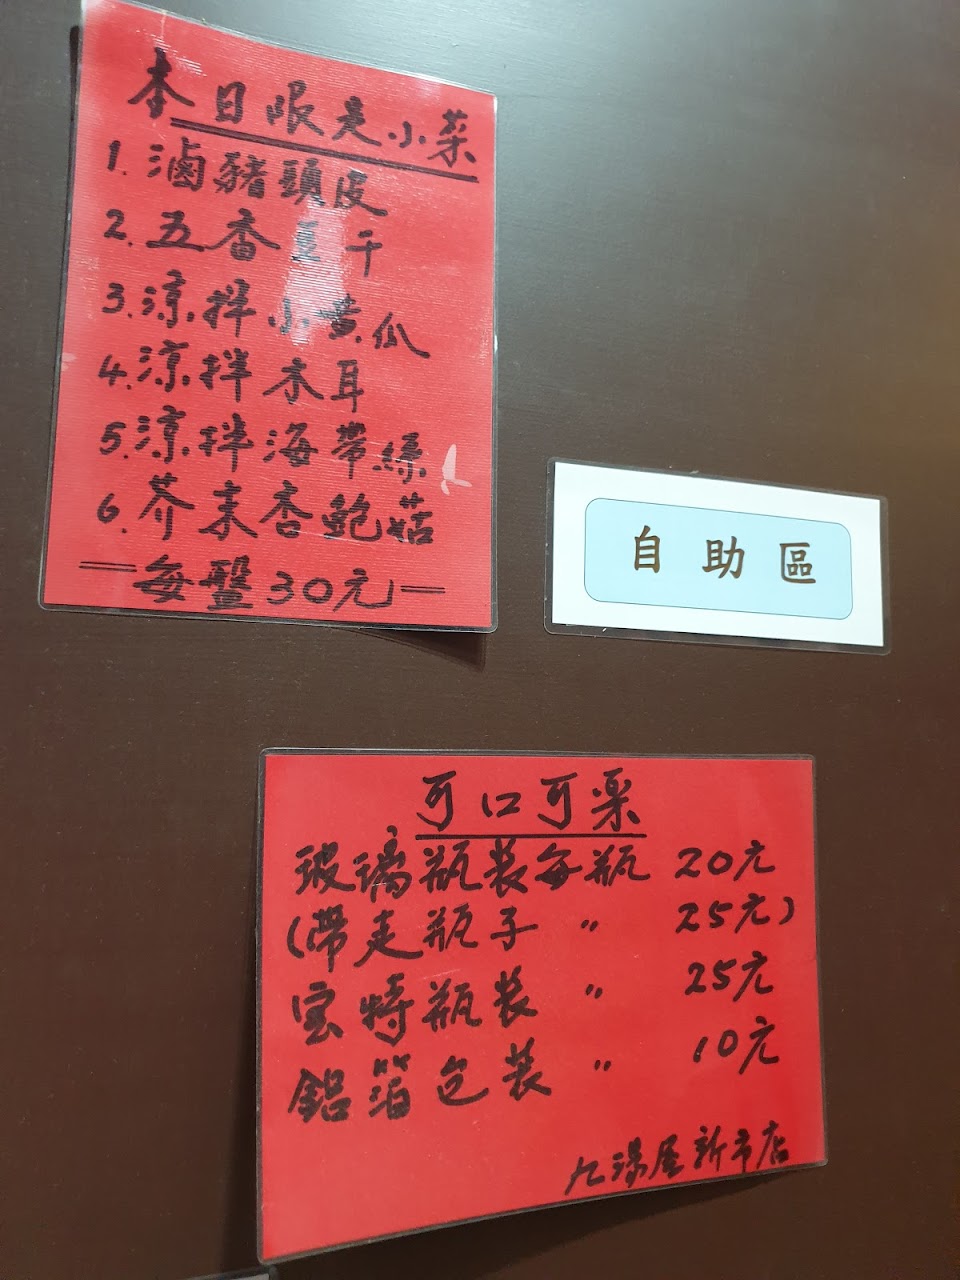 本日限定小菜
1. 滷豬頭皮
2. 五香豆干
3. 涼拌小黃瓜
4. 涼拌木耳
5. 涼拌海帶絲
6. 芥末杏鮑菇
每盤30元
自助區
可口可楽
玻璃瓶裝每瓶 20元
(帶走瓶子 〃 25元)
宝特瓶裝 〃 25元
鋁箔包裝 〃 10元
九湯屋新市店